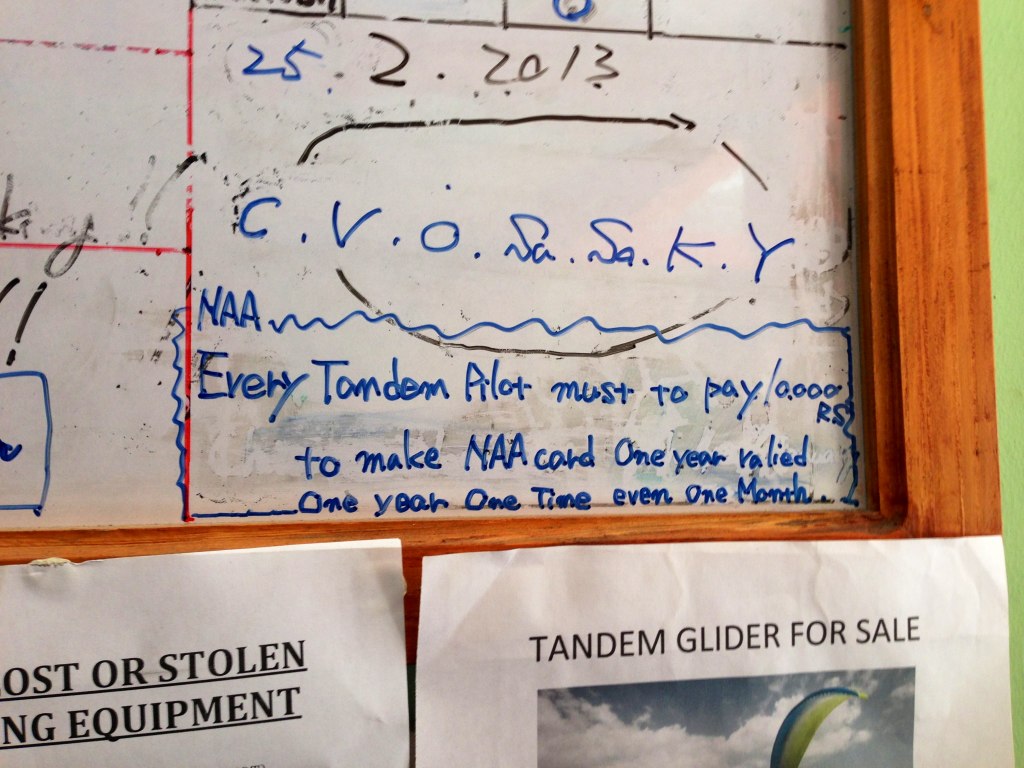 25. 2. 2013
C. V. O. Sa. Sa. K. Y
NAA
Every Tandem Pilot must to pay 10.000
RS
to make NAA card One year valied
One year One Time even One Month.
OST OR STOLEN
NG EQUIPMENT
TANDEM GLIDER FOR SALE